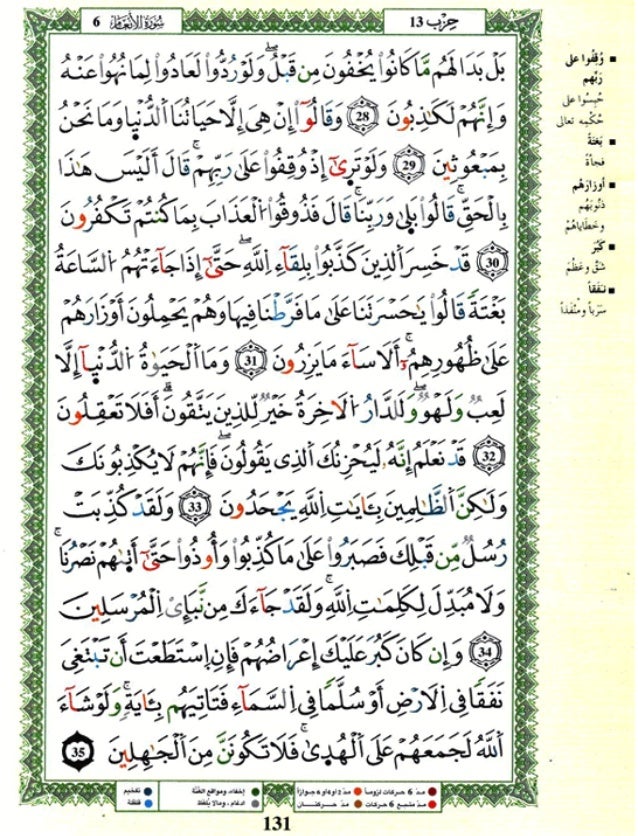 سُورَةُ الأَنْعَام 6
حِزْب 13
بَلْ بَدَا لَهُم مَّا كَانُوا يُخْفُونَ مِن قَبْلُ وَلَوْ رُدُّوا لَعَادُوا لِمَا نُهُوا عَنْهُ
وَإِنَّهُمْ لَكَٰذِبُونَ 28 وَقَالُوٓا إِنْ هِىَ إِلَّا حَيَاتُنَا اَ۬لدُّنْيَا وَمَا نَحْنُ
بِمَبْعُوثِينَ 29 وَلَوْ تَرَىٰٓ إِذْ وُقِفُوا عَلَىٰ رَبِّهِمْ قَالَ أَلَيْسَ هَٰذَا
بِالْحَقِّ قَالُوا بَلَىٰ وَرَبِّنَا قَالَ فَذُوقُوا اُ۬لْعَذَابَ بِمَا كُنتُمْ تَكْفُرُونَ
30 قَدْ خَسِرَ اَ۬لذِينَ كَذَّبُوا بِلِقَآءِ اِ۬للَّهِ حَتَّىٰٓ إِذَا جَآءَتْهُمُ اُ۬لسَّاعَةُ
بَغْتَةً قَالُوا يَٰحَسْرَتَنَا عَلَىٰ مَا فَرَّطْنَا فِيهَا وَهُمْ يَحْمِلُونَ أَوْزَارَهُمْ
عَلَىٰ ظُهُورِهِمُۥٓ أَلَا سَآءَ مَا يَزِرُونَ 31 وَمَا اَ۬لْحَيَوٰةُ اُ۬لدُّنْيَآ إِلَّا
لَعِبٌ وَلَهْوٌ وَلَلدَّارُ اُ۬لَاخِرَةُ خَيْرٌ لِّلذِينَ يَتَّقُونَ أَفَلَا تَعْقِلُونَ
32 قَدْ نَعْلَمُ إِنَّهُۥ لَيُحْزِنُكَ اَ۬لذِى يَقُولُونَ فَإِنَّهُمْ لَا يُكْذِبُونَكَ
وَلَٰكِنَّ اَ۬لظَّٰلِمِينَ بِـَٔايَٰتِ اِ۬للَّهِ يَجْحَدُونَ 33 وَلَقَدْ كُذِّبَتْ
رُسُلٌ مِّن قَبْلِكَ فَصَبَرُوا عَلَىٰ مَا كُذِّبُوا وَأُوذُوا حَتَّىٰٓ أَتَىٰهُمْ نَصْرُنَا
وَلَا مُبَدِّلَ لِكَلِمَٰتِ اِ۬للَّهِ وَلَقَدْ جَآءَكَ مِن نَّبَإِىْ اِ۬لْمُرْسَلِينَ
34 وَإِن كَانَ كَبُرَ عَلَيْكَ إِعْرَاضُهُمْ فَإِنِ اِ۪سْتَطَعْتَ أَن تَبْتَغِىَ
نَفَقًا فِى اِ۬لَارْضِ أَوْ سُلَّمًا فِى اِ۬لسَّمَآءِ فَتَاتِيَهُم بِـَٔايَةٍ وَلَوْ شَآءَ
اَ۬للَّهُ لَجَمَعَهُمْ عَلَى اَ۬لْهُدَىٰ فَلَا تَكُونَنَّ مِنَ اَ۬لْجَٰهِلِينَ 35
وُقِفُوا على
رَبِّهم
حُبِسُوا على
حُكْمِه تعالى
بَغْتَةً
فجأةً
أوْزارَهُم
ذنُوبَهُم
وخَطَاياهُمْ
كَبُرَ
شَقَّ وعَظُمَ
نَفَقاً
سَرَباً ومنْفذاً
مدّ 6 حركات لزوماً
مدّ 2 أو 4 أو 6 جوازاً
مدّ مشبع 6 حركات
مدّ حركتان
إخفاء، ومواقع الغُنَّة
ادغام، ومالا يُلفَظ
تفخيم
قلقلة
131